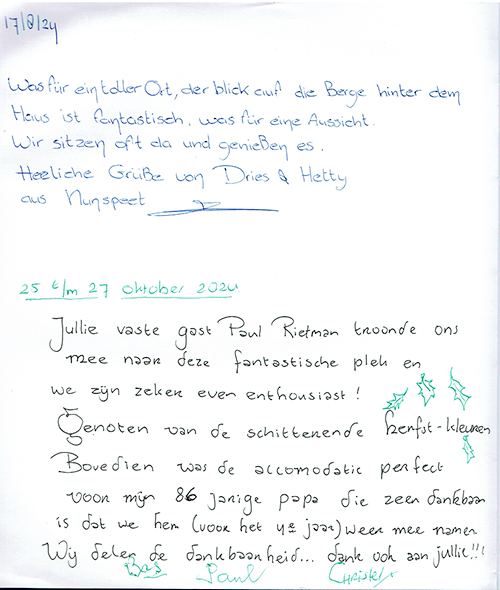 17/8/24
Was für ein toller Ort, der blick auf die Berge hinter dem
Haus ist fantastisch. was für eine Aussicht.
Wir sitzen oft da und genießen es.
Herzliche Grüße von Dries & Hetty
aus Nunspeet
25 t/m 27 oktober 2024
Jullie vaste gast Paul Rietman troonde ons
mee naar deze fantastische plek en
we zijn zeker even enthousiast!
Genoten van de schitterende herfst-kleuren
Bovedien was de accomodatie perfect
voor mijn 86 jarige papa die zeer dankbaar
is dat we hem (voor het 4e jaar) weer mee namen
Wij delen de dankbaarheid... dank ook aan jullie!!!
Bas Paul Christel